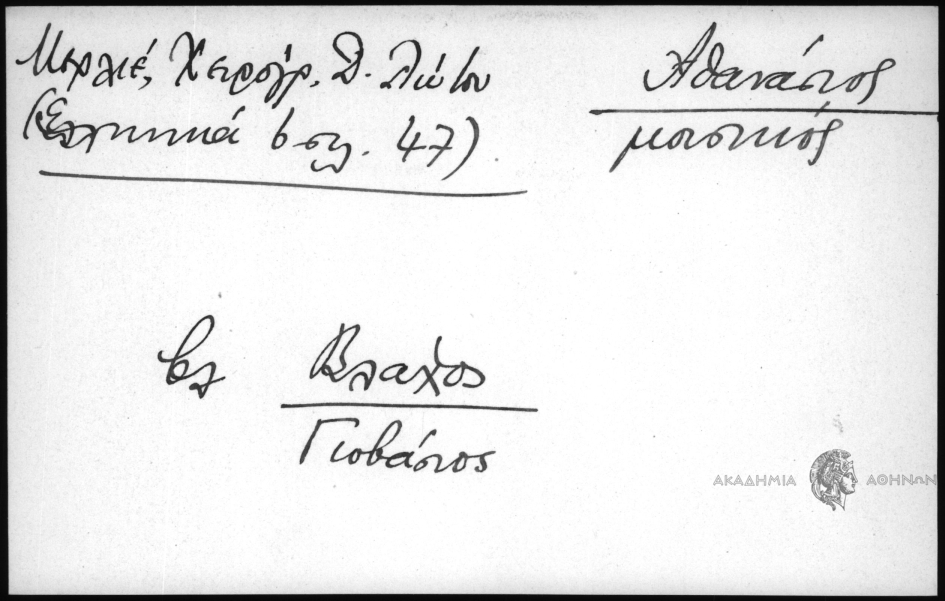 Μερλιέ, Χειρόγρ. Δ. Λιώτου
(Ελληνικά 6 σελ. 47)
Αθανάσιος
μουσικός
βλ Βλάχος
Γιοβάσιος
ΑΚΑΔΗΜΙΑ ΑΘΗΝΩΝ